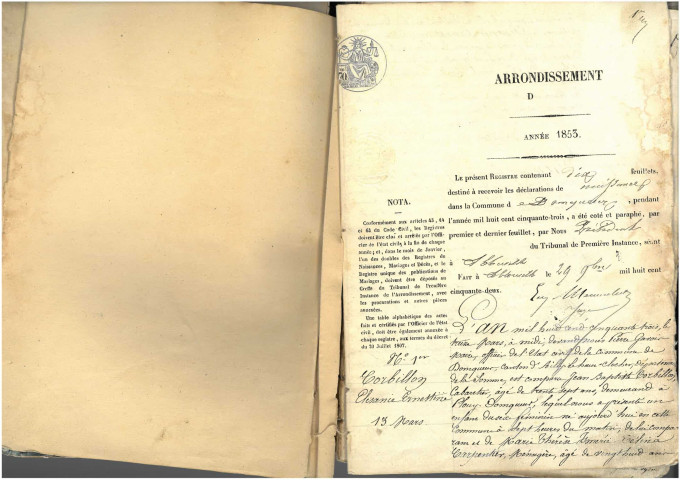 ARRONDISSEMENT
D
ANNÉE 1853.
Le présent REGISTRE contenant dix feuillets,
destiné à recevoir les déclarations de naissances
dans la Commune d e Domqueur, pendant
l'année mil huit cent cinquante-trois, a été coté et paraphé, par
premier et dernier feuillet, par Nous Président
du Tribunal de Première Instance, séant
à Abbeville
FAIT à Abbeville le 29 9bre mil huit cent
cinquante-deux.
NOTA.
Conformément aux articles 43, 44
et 63 du Code Civil, les Registres
doivent être clos et arrêtés par l'Officier
de l'état civil, à la fin de chaque
année; et, dans le mois de Janvier,
l'un des doubles des Registres de
Naissances, Mariages et Décès, et le
Registre unique des publications de
Mariages, doivent être déposés au
Greffe du Tribunal de Première
Instance de l'Arrondissement, avec
les procurations et autres pièces
annexées.
Une table alphabétique des actes
faits et certifiés par l'Officier de l'état
civil, doit être également annexée à
chaque registre, aux termes du décret
du 20 Juillet 1807.
No 1er
Corbillon
Elisanie Ernestine
13 Mars
L'AN mil huit cent cinquante trois, le
treize Mars, à midi, devant nous Pierre
maire, officier de l'Etat civil de la commune de
Domqueur, canton d'Ailly le haut clocher, département
de la Somme, est comparu Jean Baptiste Corbillon,
Cabaretier, âgé de trente sept ans, demeurant à
Domqueur, lequel nous a présenté un
enfant du sexe féminin né aujourd'hui en cette
Commune à sept heures du matin, de lui compa-
rant et de Marie Thérèse
Carpentier, Ménagère, âgé de vingt huit ans